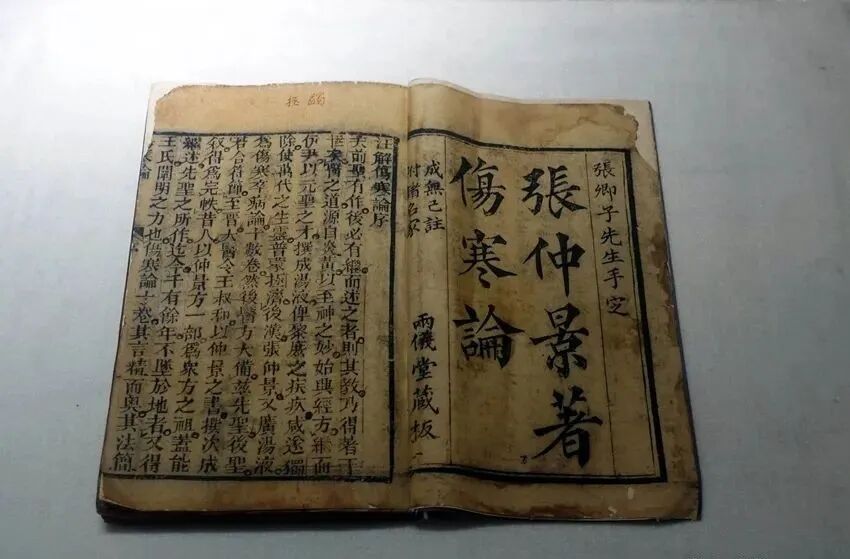 張卿子先生手定
張仲景著
傷寒論
成無己註
附諸名家
兩儀堂藏板
注解傷寒論序
夫前聖有作後必有繼而述之者則其教乃得著于
世矣醫之道源自炎黃以至神之妙始興經方繼而
伊尹以元聖之才撰成湯液俾黎庶之疾疚咸遂蠲
除使萬代之生靈普蒙拯濟後漢張仲景又廣湯液
爲傷寒卒病論十數卷然後醫方大備茲先聖後聖
若合符節至晉太醫令王叔和以仲景之書撰次成
叙得爲完帙昔人以仲景方一部爲衆方之祖蓋能
繼述先聖之所作迄今千有餘年不墜於地者又得
王氏闡明之力也傷寒論十卷其言精而奧其法簡